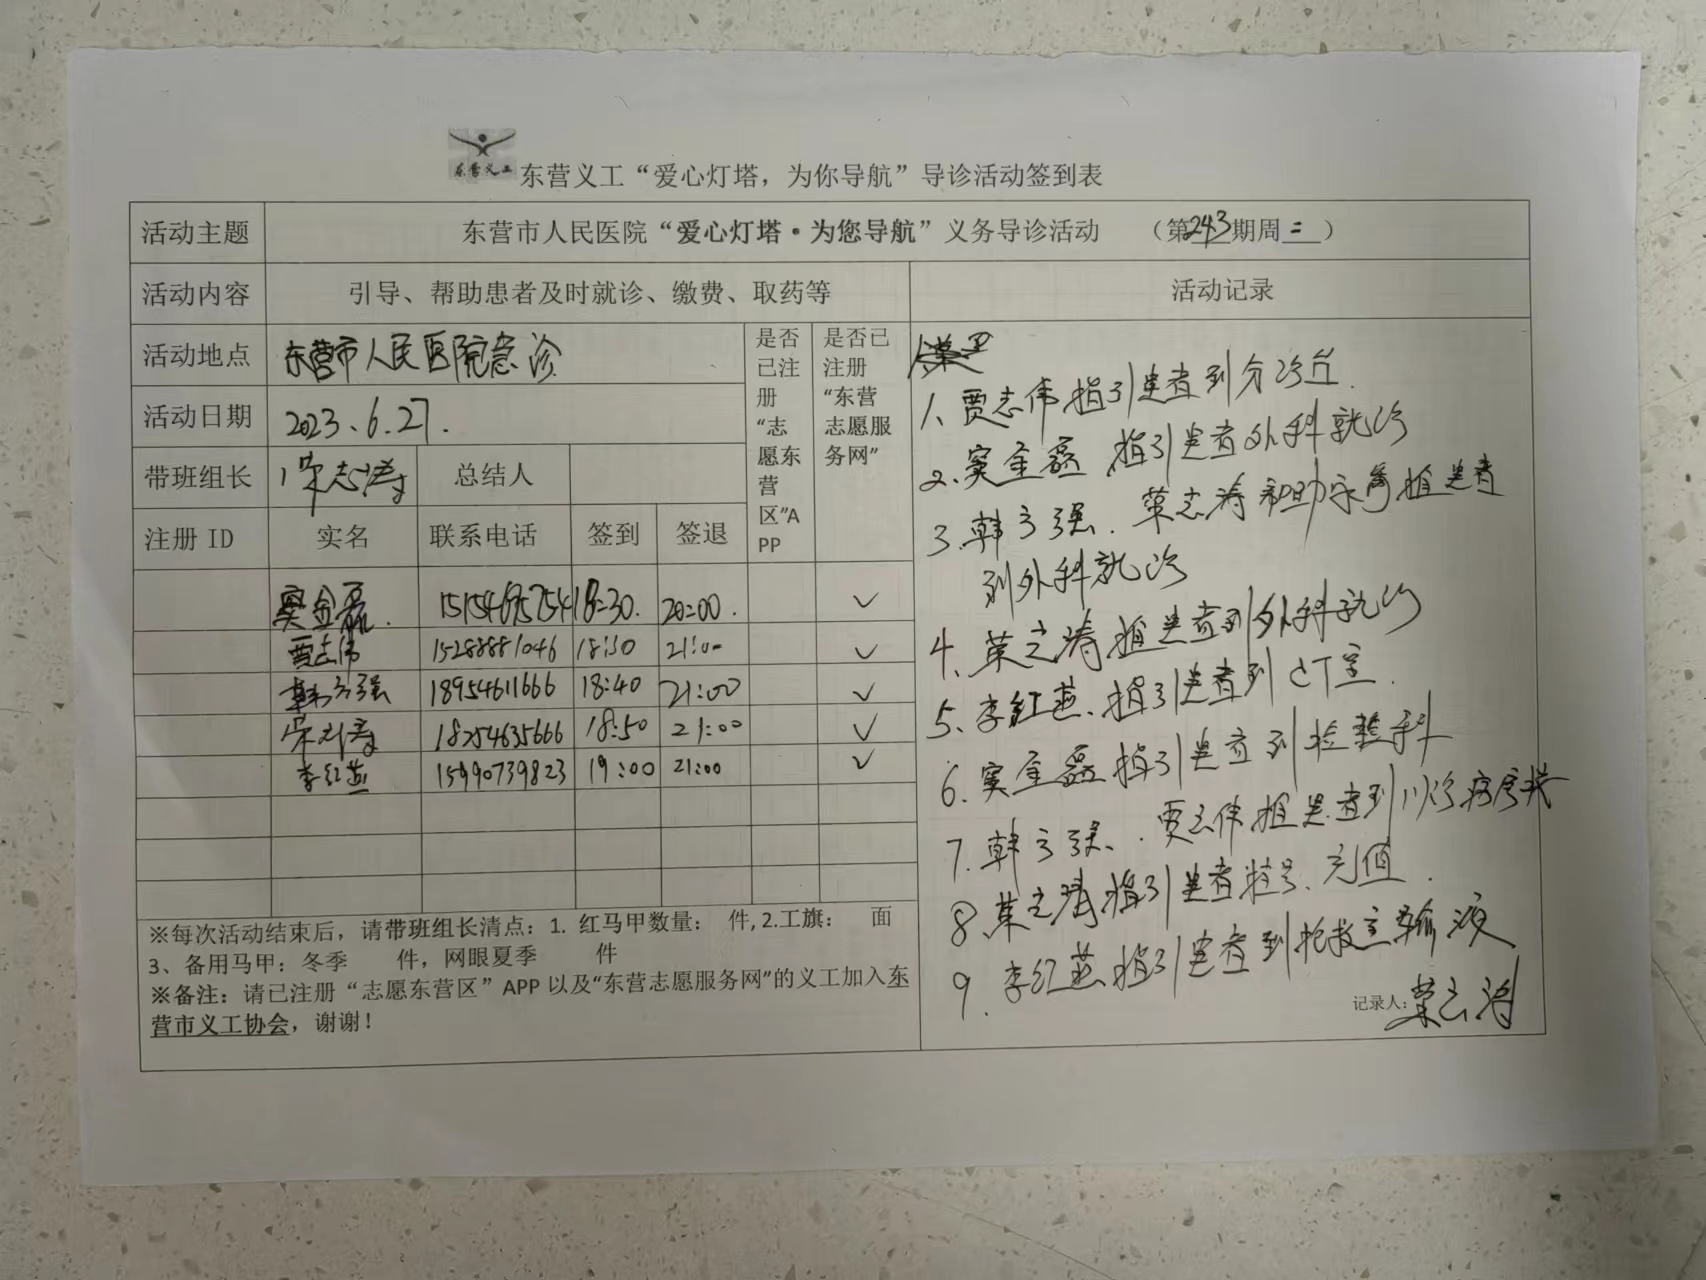 东营义工
东营义工“爱心灯塔，为你导航”导诊活动签到表
活动主题 东营市人民医院“爱心灯塔·为您导航”义务导诊活动 （第243期周二）
活动内容 引导、帮助患者及时就诊、缴费、取药等 活动记录
活动地点 东营市人民医院急诊
活动日期 2023.6.27.
带班组长 荣志涛 总结人
是否已注册“志愿东营区”APP
是否已注册“东营志愿服务网”
注册 ID 实名 联系电话 签到 签退
窦金磊. 15154695754 18:30. 20:00. ✓
贾志伟 15288881046 18:30 21:00 ✓
韩方强 18954611666 18:40 21:00 ✓
荣志涛 18254635666 18:50 21:00 ✓
李红燕 15990739823 19:00 21:00 ✓
※每次活动结束后，请带班组长清点：1. 红马甲数量： 件, 2.工旗： 面
3、备用马甲：冬季 件，网眼夏季 件
※备注：请已注册“志愿东营区”APP 以及“东营志愿服务网”的义工加入东
营市义工协会，谢谢！
1、贾志伟指引患者到分诊台.
2、窦金磊 指引患者外科就诊
3、韩方强、荣志涛和助家属推患者
到外科就诊
4、荣志涛推患者到外科就诊
5、李红燕、指引患者到CT室.
6、窦金磊指引患者到检验科
7、韩方强、贾志伟推患者到门诊病房楼
8、荣志涛指引患者挂号、充值.
9、李红燕指引患者到抢救室输液
记录人：荣志涛